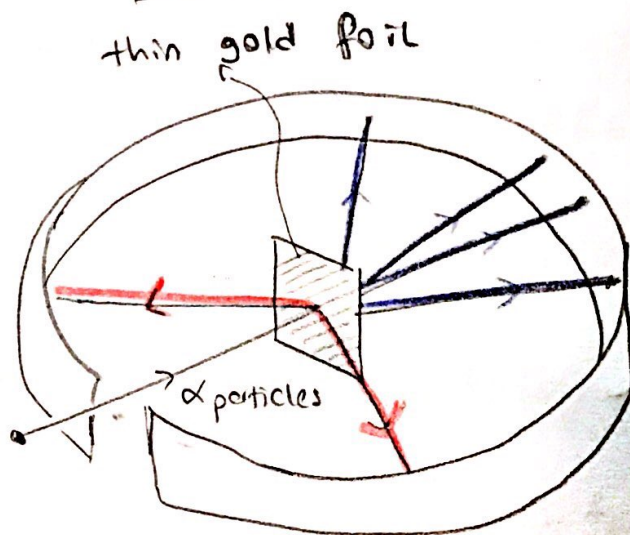 thin gold foil
α particles